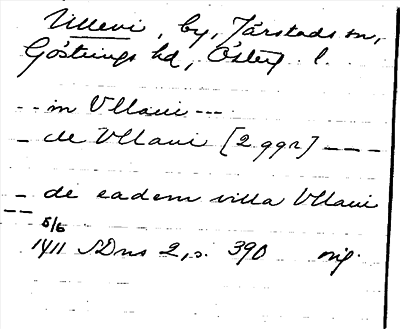 Ullevi, by, Järstads sn,
Göstrings hd, Österg. l.
-- in Vllaui ---
- de Vllaui [2 ggr] ----
- de eadem villa Vllaui
--
5/6
1411 SDns 2, s. 390 orig.